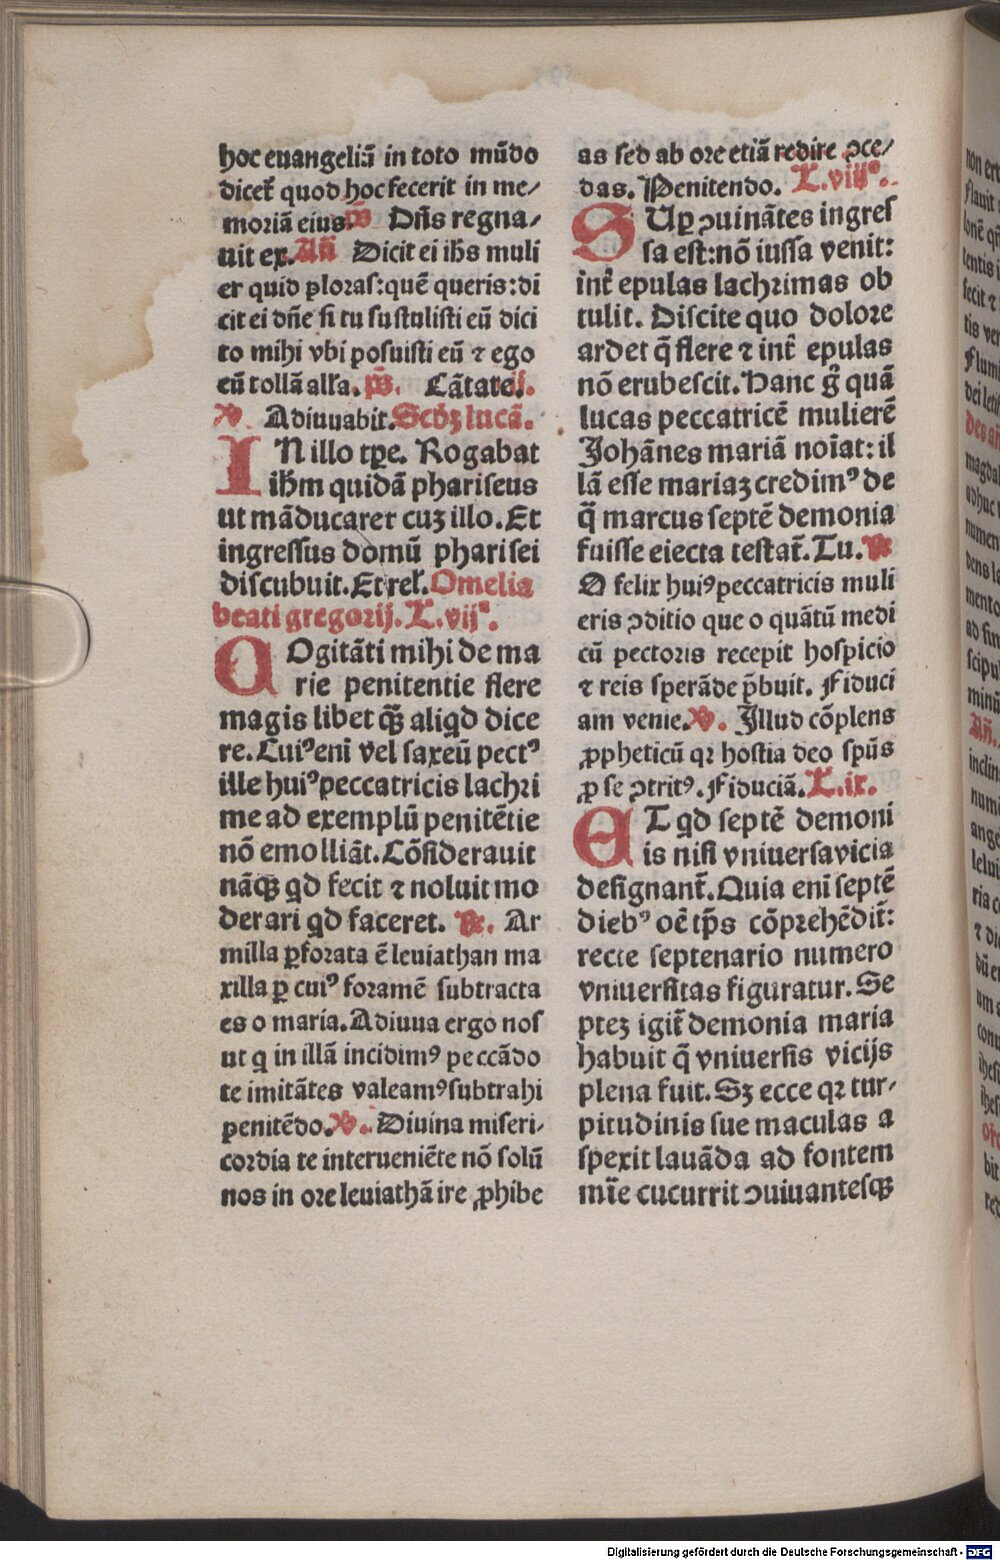 hoc euangeliū in toto mūdo
dicet᷑ quod hoc fecerit in me⸗
moriā eius. p̄s Dn̄s regna⸗
uit ex. Añ Dicit ei ihs muli
er quid ploras: quē queris: di
cit ei dn̄e si tu sustulisti eū dici
to mihi vbi posuisti eū ⁊ ego
eū tollā alľa. p̄s. Cātate. ij.
℣. Adiuuabit. Scd̄ꝫ lucā.
IN illo tꝑe. Rogabat
ihm̄ quidā phariseus
ut māducaret cuꝫ illo. Et
ingressus domū pharisei
discubuit. Et rel̄. Omelia
beati gregorij. L. vijᵃ.
COgitāti mihi de ma
rie penitentie flere
magis libet qꝫ̄ aliqd dice
re. Cuiꝰ eni̅ vel saxeū pectꝰ
ille huiꝰ peccatricis lachri
me ad exemplū penitētie
nō emolliāt. Cōsiderauit
nāqꝫ qd fecit ⁊ noluit mo
derari qd faceret. ℟. Ar
milla ꝑforata ē leuiathan ma
xilla ꝑ cuiꝰ foramē subtracta
es o maria. Adiuua ergo nos
ut q in illā incidimꝰ peccādo
te imitātes valeamꝰ subtrahi
penitēdo. ℣. Diuina miseri⸗
cordia te interueniēte nō solū
nos in ore leuiathā ire ꝓhibe
as sed ab ore etiā redire ꝯce⸗
das. Penitendo. L. viijᵃ.
SUꝑ ꝯuināntes ingres
sa est: nō iussa venit:
int᷑ epulas lachrimas ob
tulit. Discite quo dolore
ardet q̄ flere ⁊ int᷑ epulas
nō erubescit. Hanc g̊ quā
lucas peccatricē mulierē
Johānes mariā noīat: il
lā esse mariaꝫ credimꝰ de
q̄ marcus septē demonia
fuisse eiecta testat᷑. Tu. ℟
O felix huiꝰ peccatricis muli
eris ꝯditio que o quātū medi
cū pectoris recepit hospicio
⁊ reis sperāde p̄buit. Fiduci
am venie. ℣. Illud cōplens
ꝓpheticū qꝛ hostia deo spūs
ꝓ se ꝯtritꝰ. Fiduciā. L. ix.
ET qd septē demoni
is nisi vniuersa vicia
designant᷑. Quia eni̅ septē
diebꝰ oē tp̄s cōprehēdit᷑:
recte septenario numero
vniuersitas figuratur. Se
pteꝫ igit᷑ demonia maria
habuit q̄ vniuersis vicijs
plena fuit. Sꝫ ecce qꝛ tur⸗
pitudinis sue maculas a
spexit lauāda ad fontem
mīe cucurrit ꝯuiuantesqꝫ
Digitalisierung gefördert durch die Deutsche Forschungsgemeinschaft - DFG